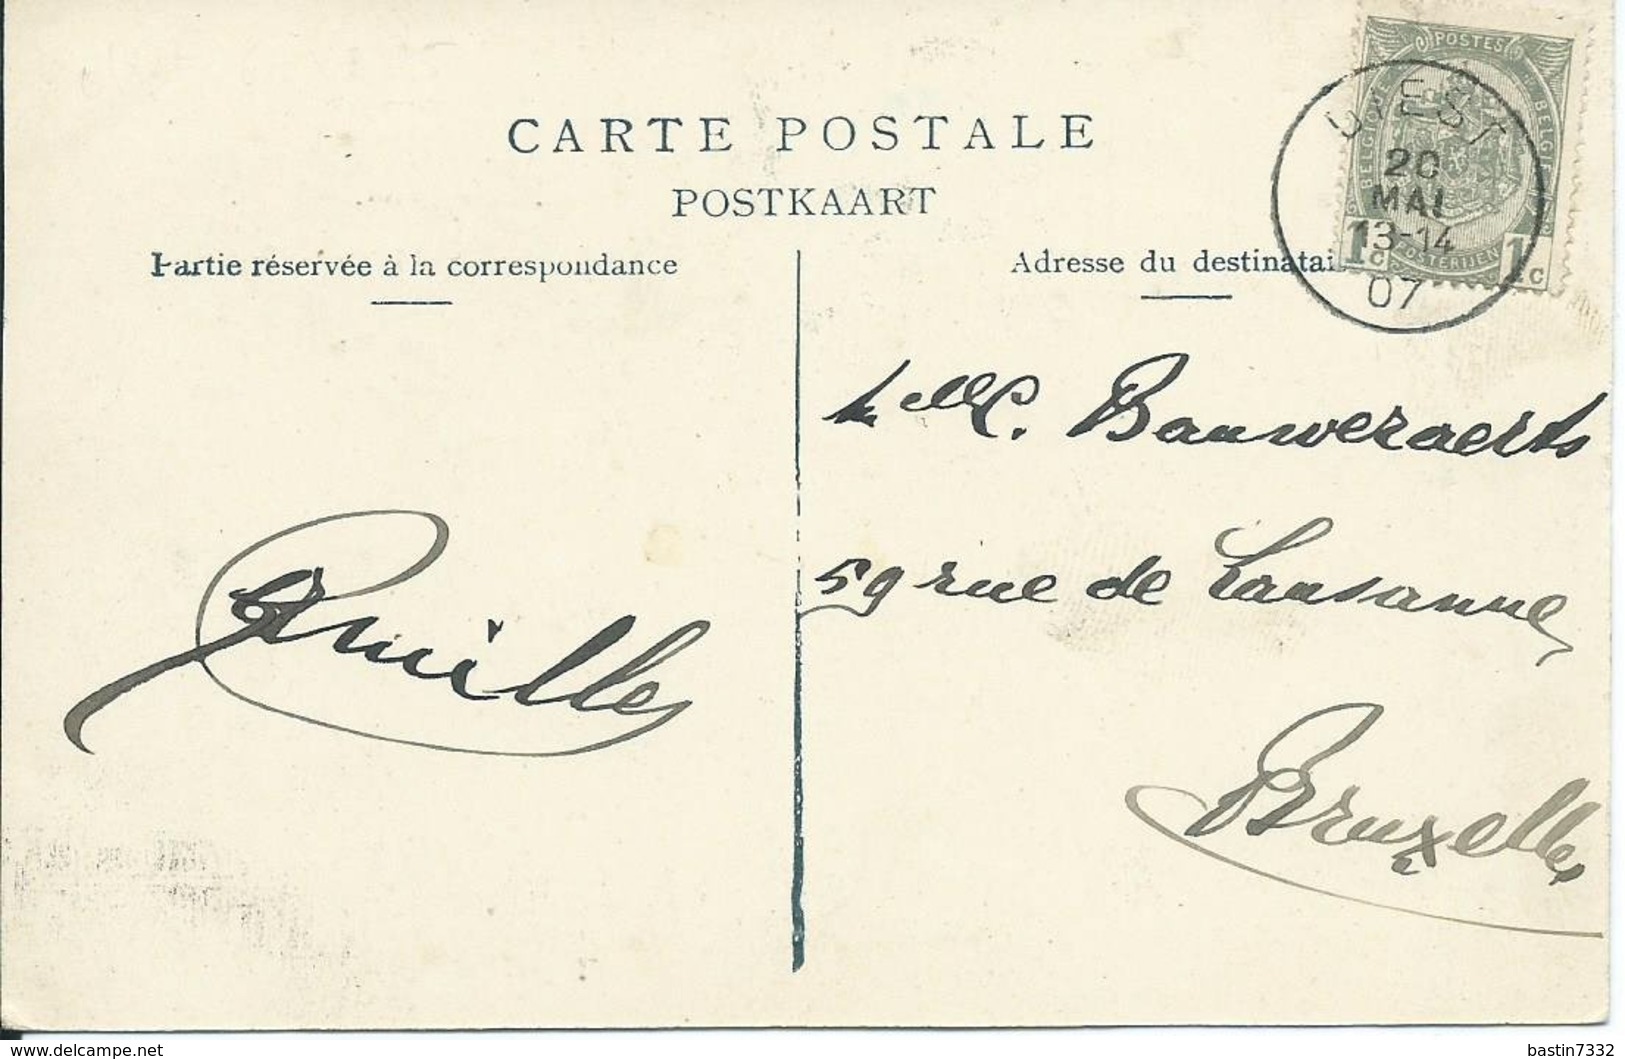 CARTE POSTALE
POSTKAART
Partie réservée à la correspondance
Adresse du destinatai
POSTES
BELGIQUE
BELGIË
POSTERIJEN
1c 1c
DIEST
20
MAI
13-14
07
Melle C. Bauweraerts
59 rue de Lausanne
Bruxelles
bastin7332